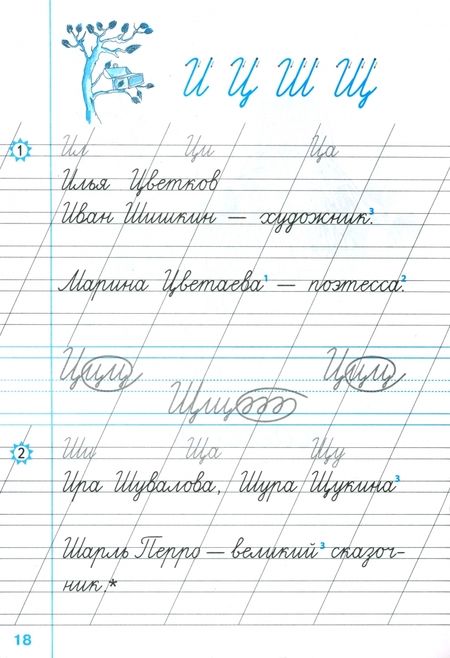 И Ц Ш Щ
1
Ил Ци Ца
Илья Цветков
Иван Шишкин — художник³.
Марина Цветаева¹ — поэтесса².
Ццц Ццц
Щщц
2
Ши Ща Щу
Ира Шувалова, Шура Щукина³
Шарль Перро — великий³ сказоч-
ник.*
18